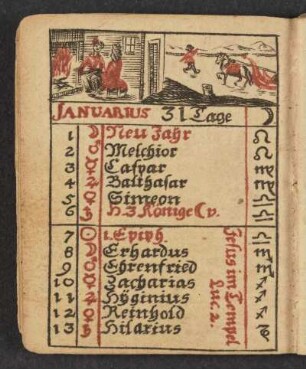 JANUARIUS 31 Tage
1 ☽ Neu Jahr
2 ♂ Melchior
3 ☿ Caspar
4 ♃ Balthasar
5 ♀ Simeon
6 ♄ H. 3 Könige ☾ v.
7 ☉ 1. Epiph.
8 ☽ Erhardus
9 ♂ Ehrenfried
10 ☿ Zacharias
11 ♃ Hÿginius
12 ♀ Reinhold
13 ♄ Hilarius
Jesus im Tempel
Luc. 2.